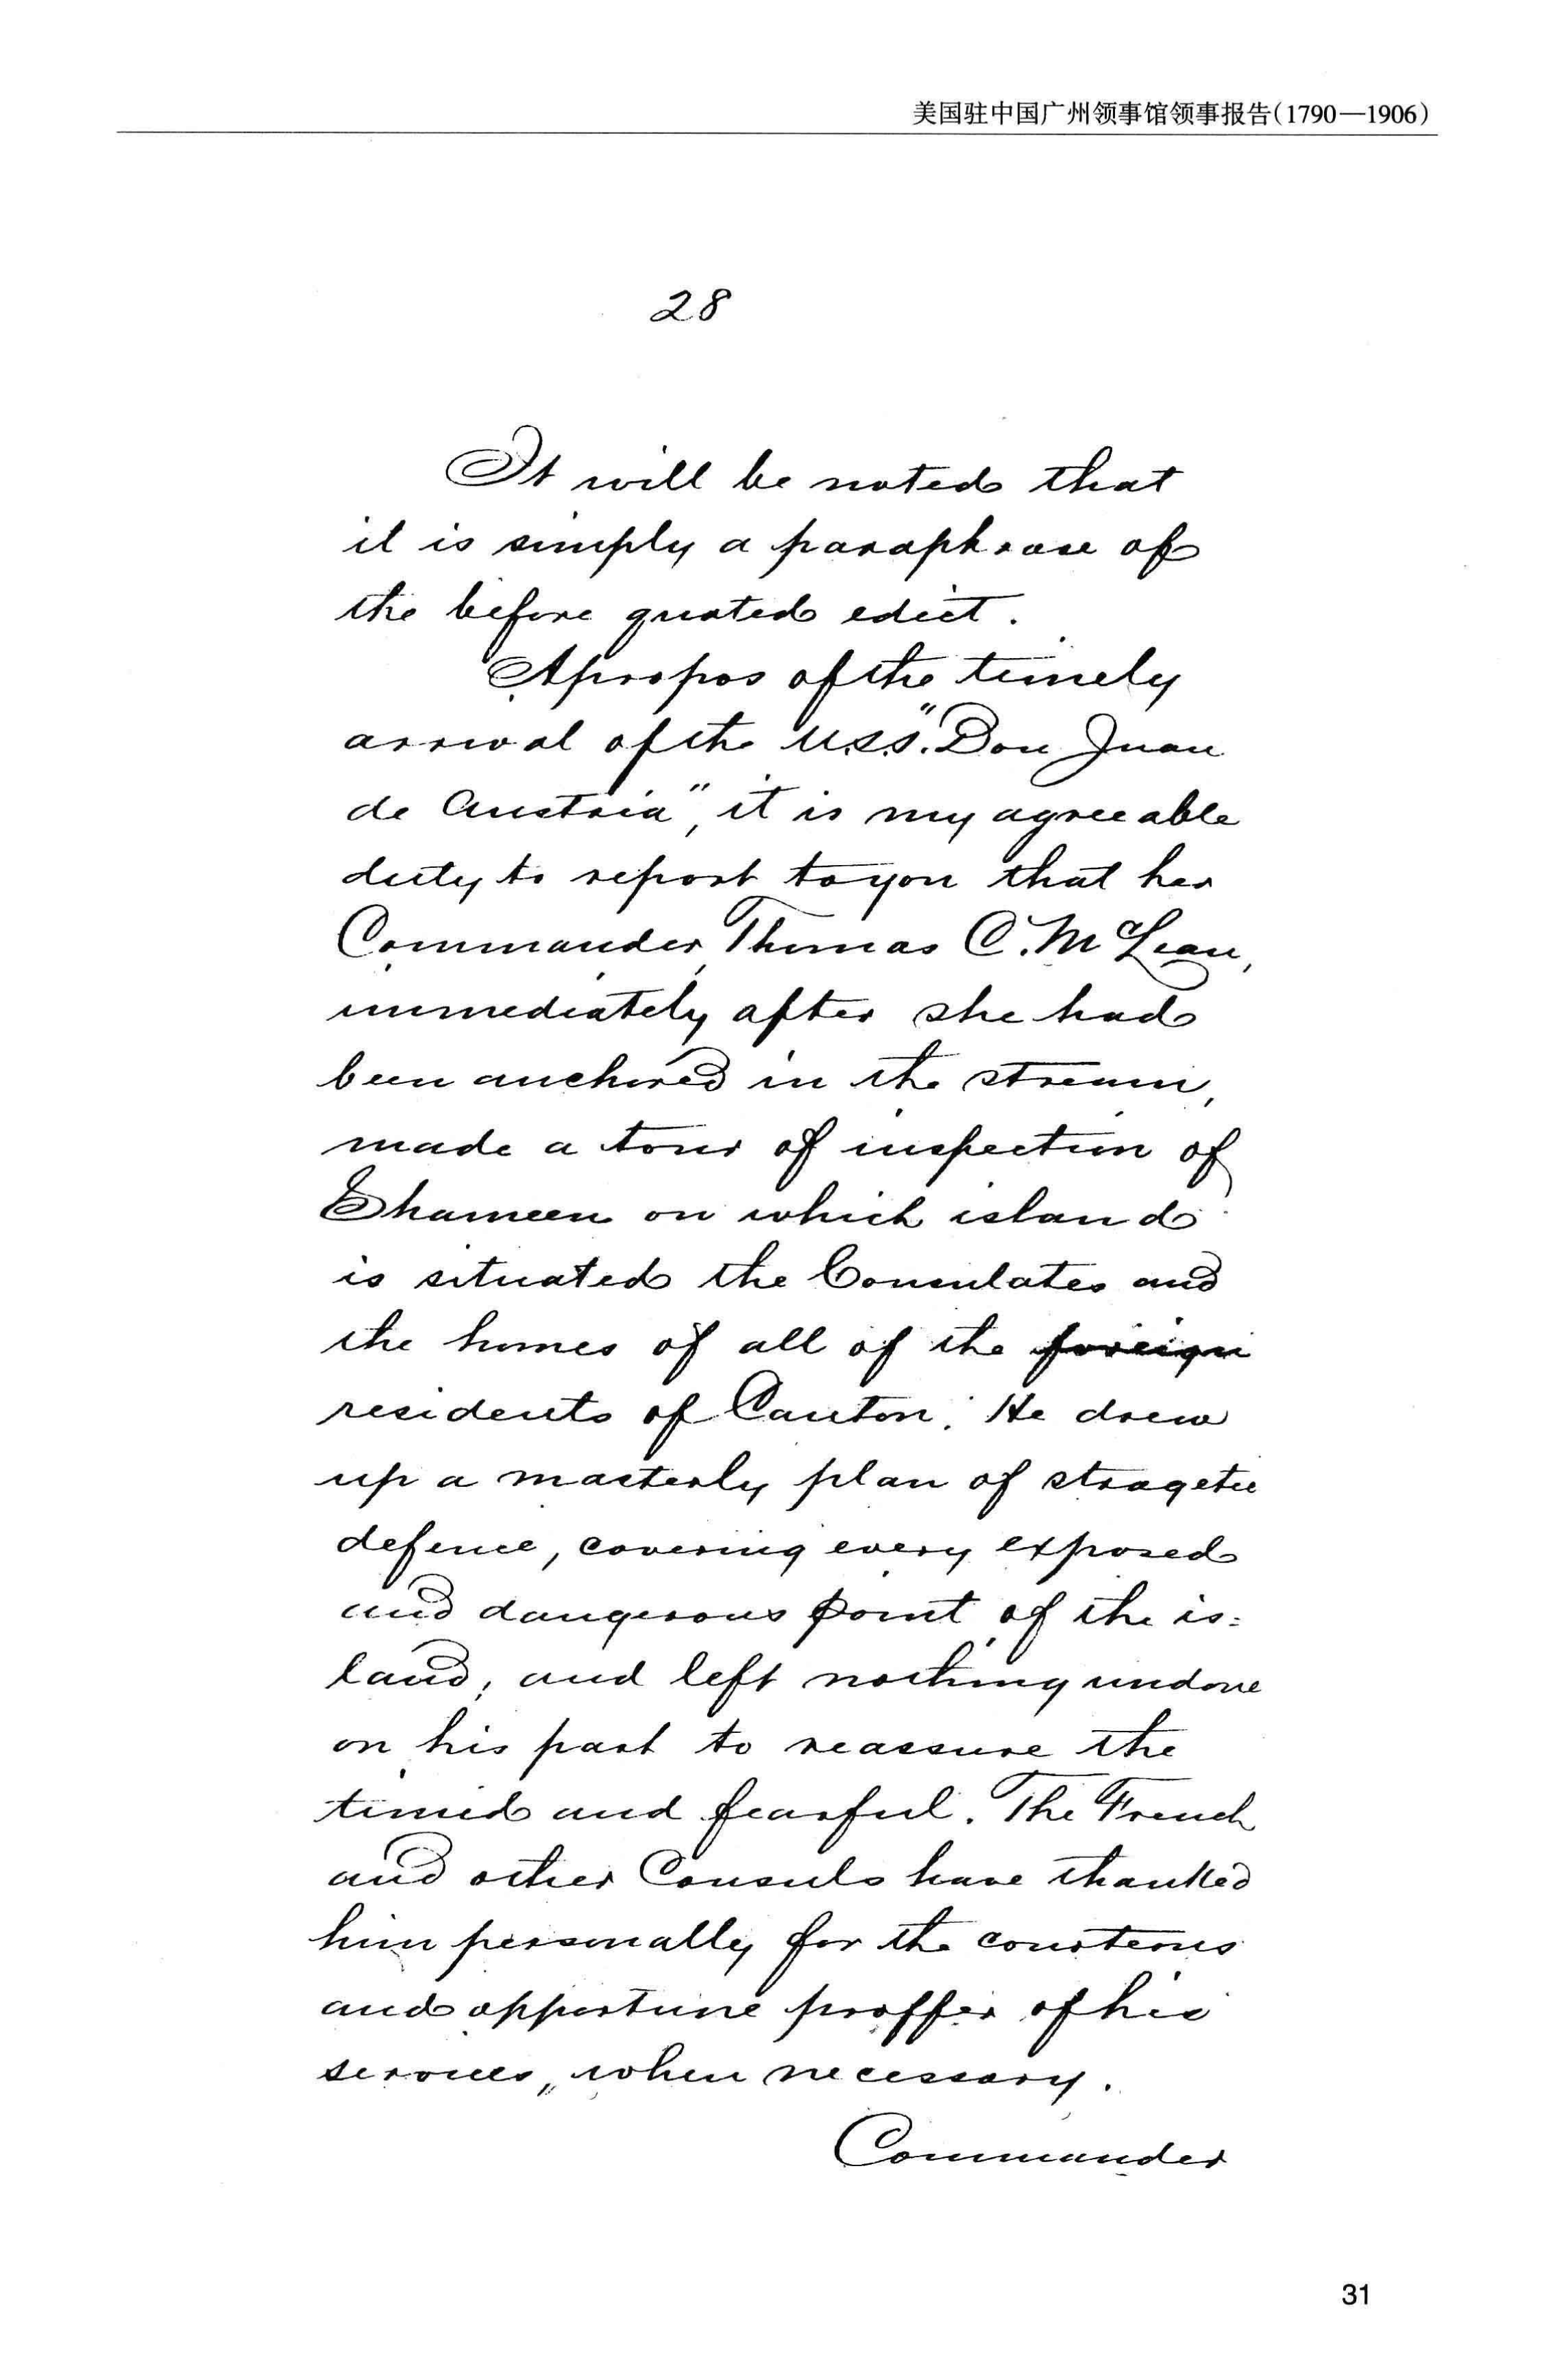 美国驻中国广州领事馆领事报告(1790—1906)
28
It will be noted that
it is simply a paraphrase of
the before quoted edict.
Apropos of the timely
arrival of the U.S.S. "Don Juan
de Austria", it is my agreeable
duty to report to you that her
Commander, Thomas C. McLean,
immediately after she had
been anchored in the stream,
made a tour of inspection of
Shameen on which island
is situated the Consulates and
the homes of all of the foreign
residents of Canton. He drew
up a masterly plan of stragetic
defence, covering every exposed
and dangerous point of the is=
land; and left nothing undone
on his part to reassure the
timid and fearful. The French
and other Consuls have thanked
him personally for the courteous
and opportune proffer of his
services, when necessary.
Commander
31